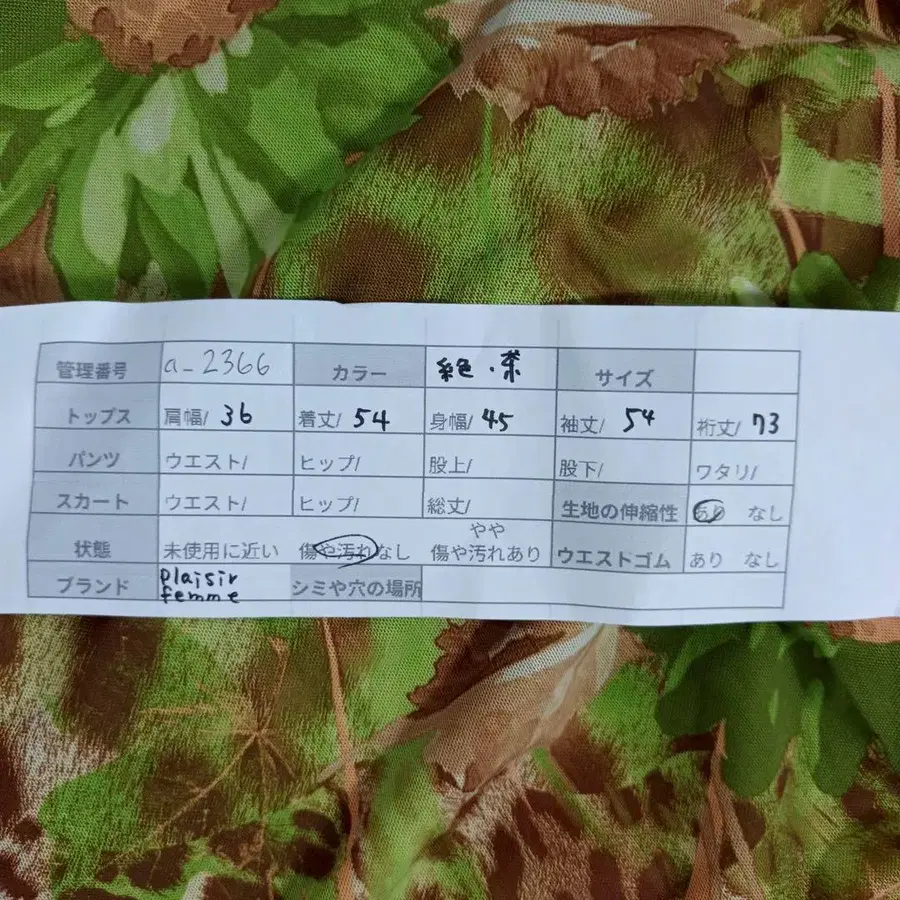 管理番号 a-2366 カラー 絶・茶 サイズ
トップス 肩幅/ 36 着丈/ 54 身幅/ 45 袖丈/ 54 裄丈/ 73
パンツ ウエスト/ ヒップ/ 股上/ 股下/ ワタリ/
スカート ウエスト/ ヒップ/ 総丈/ 生地の伸縮性 あり なし
状態 未使用に近い 傷や汚れなし やや
傷や汚れあり ウエストゴム あり なし
ブランド plaisir
femme シミや穴の場所